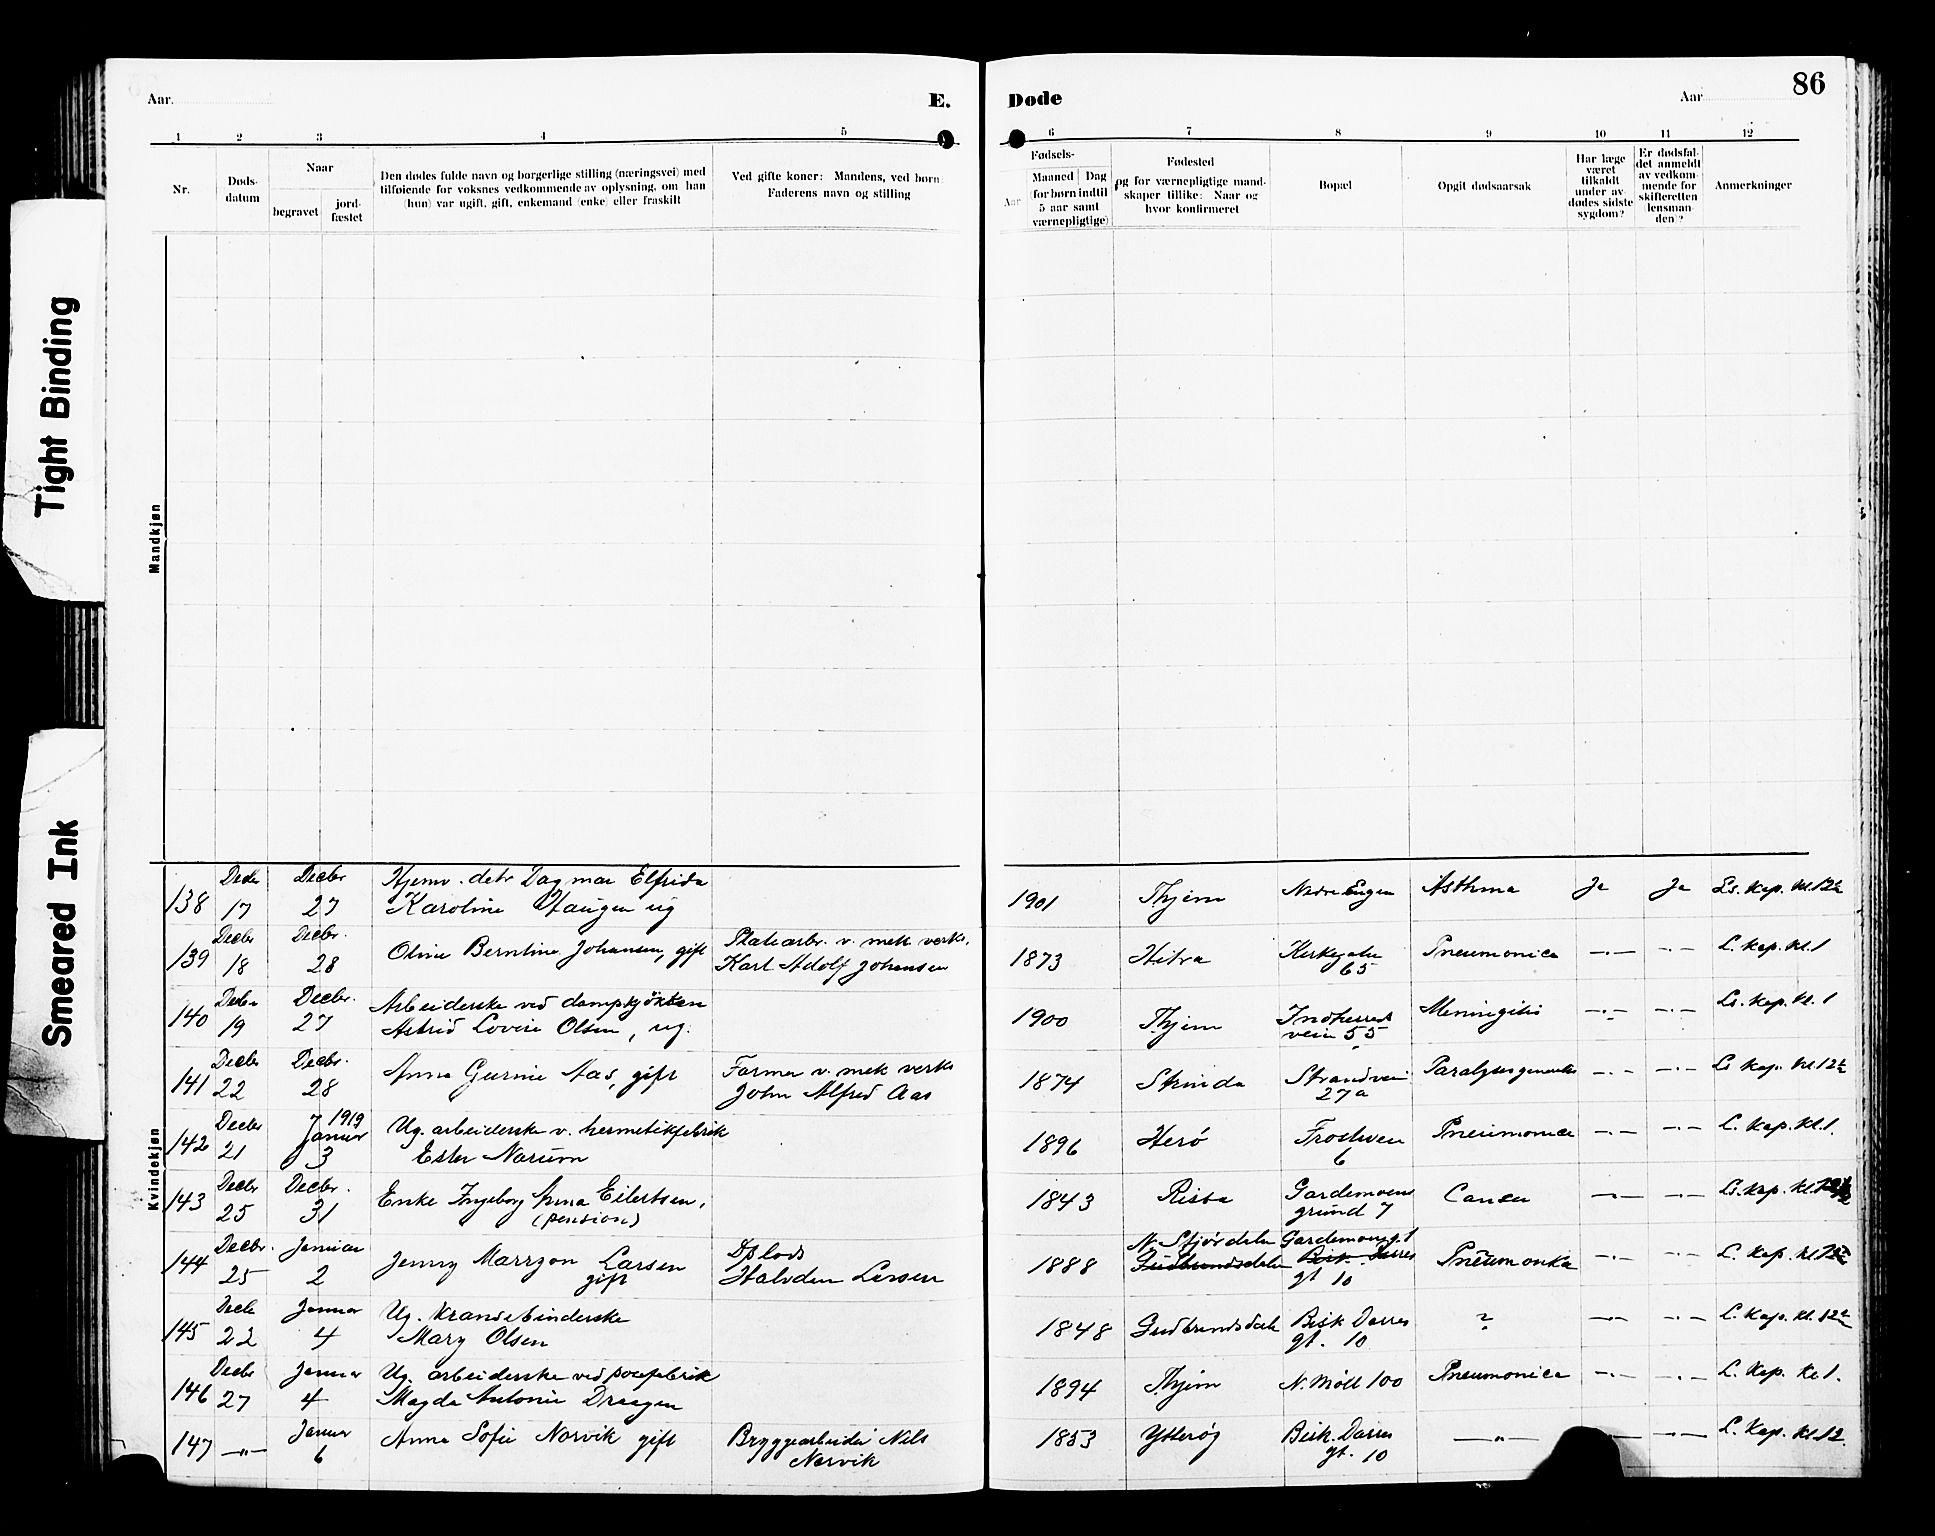 Tight Binding
Smeared Ink
Aar
E.
Døde
Aar
86
1 2 3 4 5 6 7 8 9 10 11 12
Nr.
Døds-
datum
Naar
begravet
jord-
fæstet
Den dødes fulde navn og borgerlige stilling (næringsvei) med
tilføiende for voksnes vedkommende av oplysning, om han
(hun) var ugift, gift, enkemand (enke) eller fraskilt
Ved gifte koner: Mandens, ved børn:
Faderens navn og stilling
Fødsels-
Aar
Maaned Dag
(for børn indtil
5 aar samt
værnepligtige)
Fødested
og for værnepligtige mand-
skaper tillike: Naar og
hvor konfirmeret
Bopæl
Opgit dødsaarsak
Har læge
været
tilkaldt
under av-
dødes sidste
sygdom?
Er dødsfal-
det anmeldt
av vedkom-
mende for
skifteretten
(lensman-
den)?
Anmerkninger
Mandkjøn
Kvindekjøn
138 Decbr 17 Decbr 27 Hjemv. detr Dagmar Elfrida
Karoline Haugen ug 1901 Thjem Nedre Engen Asthma Ja Ja Ls. kap. kl. 12½
139 Decbr 18 Decbr. 28 Oline Berntine Johansen, gift Platearb. v. mek verks.
Karl Adolf Johansen 1873 Hitra Kirkegaten
65 Pneumonica —„— —„— L. kap. kl. 1
140 Decbr 19 Decbr. 27 Arbeiderske ved dampkjøkken
Astrid Lovise Olsen, ug. 1900 Thjem Indherreds
veien 55 Meningitis —„— —„— Ls. kap. kl. 1
141 Decbr 22 Decbr. 28 Anna Gurine Aas, gift Former v. mek verks
John Alfred Aas 1874 Strinda Strandvei
27a Paralyse generalis —„— —„— Ls kap. kl 12½
142 Decbr 21 1919
Januar 3 Ug. arbeiderske v. hermetikfabrik
Ester Norum 1896 Herö Frostaveien
6 Pneumonica —„— —„— L. kap. kl. 1.
143 Decbr 25 Decbr. 31 Enke Ingeborg Anna Eilertsen,
(pension) 1843 Rissa Gardemoens
grund 7 Cancer —„— —„— Ls. kap. kl.
144 Decbr. 25 Januar 2 Jenny Marry Larsen
gift Lods
Halvdan Larsen 1888 N. Stjørdalen
Gudbrandsdalen Gardemoensg. 1
Bisk. Darres
gt 10 Pneumonica —„— —„— L. kap. kl 12½
145 Decbr 22 Januar 4 Ug. Kransebinderske
Mary Olsen 1848 Gudbrandsdalen Bisk Darres
gt. 10 ? —„— —„— L. Kap. kl. 12½
146 Decbr 27 Januar 4 Ug. arbeiderske ved posefabrik
Magda Antonie Draagen 1894 Thjem N. Möll 100 Pneumonica —„— —„— L. Kap. kl 1.
147 —„— Januar 6 Anna Sofie Norvik gift Bryggearbeider Nils
Norvik 1853 Ytterøy Bisk. Darres
gt. 10 —„— —„— L. Kap. kl 12.